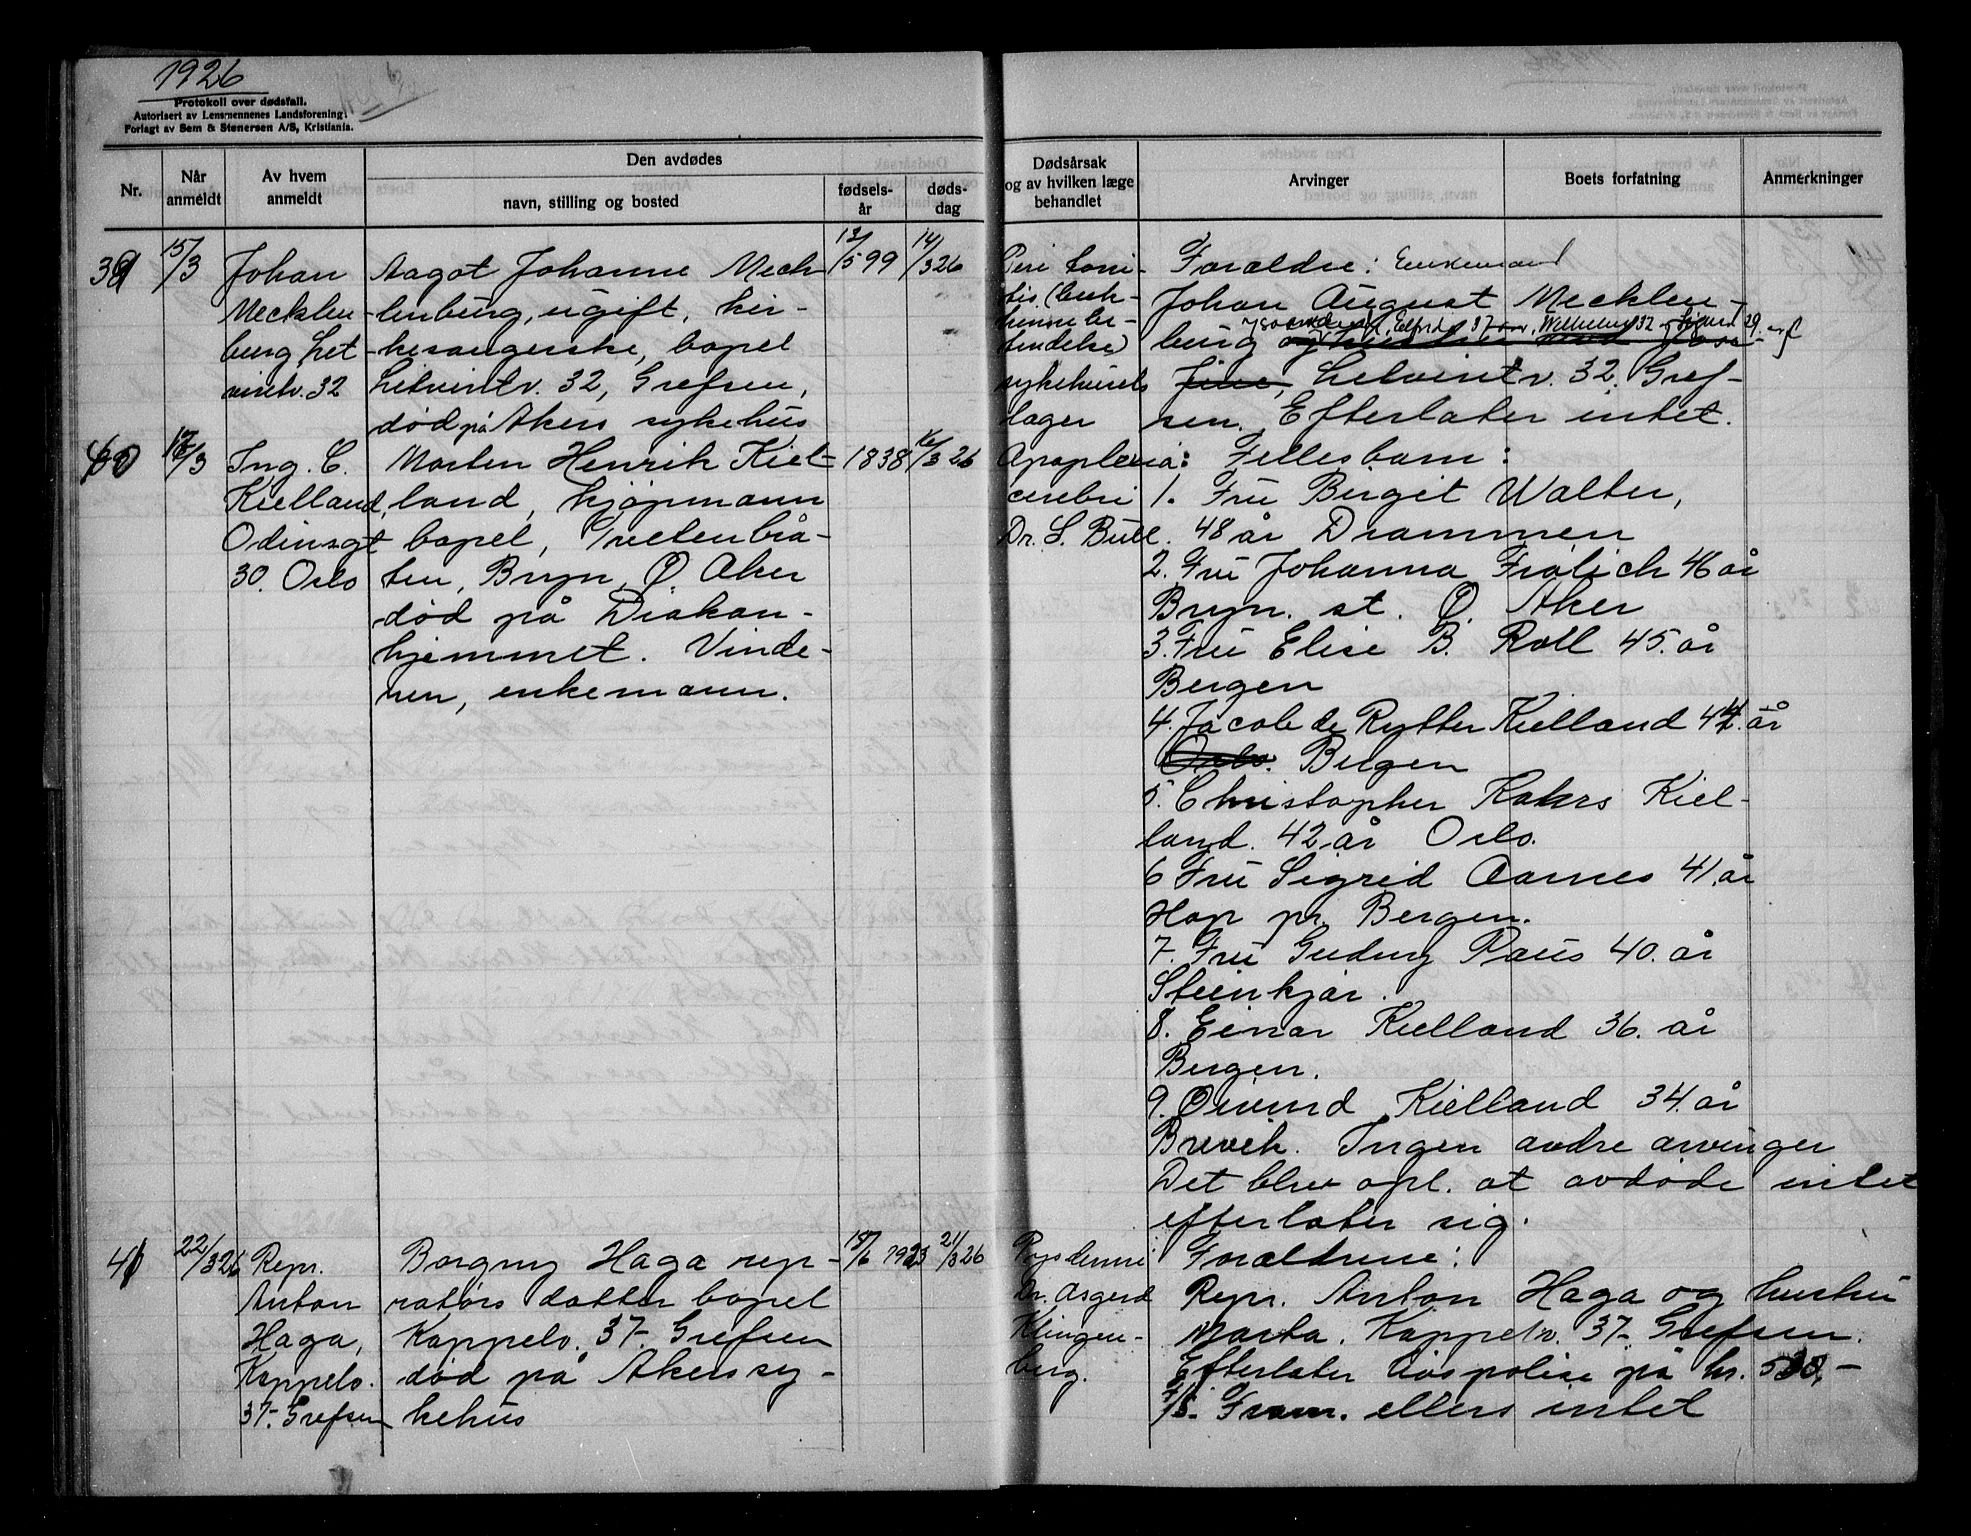 1926
Protokoll over dødsfall.
Autorisert av Lensmennenes Landsforening.
Forlagt av Sem & Stenersen A/S, Kristiania.
Nr.
Når
anmeldt
Av hvem
anmeldt
Den avdødes
navn, stilling og bosted
fødsels-
år
døds-
dag
Dødsårsak
og av hvilken læge
behandlet
Arvinger
Boets forfatning
Anmerkninger
39
15/3
Johan
Mecklen-
burg Let-
vintv. 32
Aagot Johanne Meck-
lenburg, ugift, hir-
kesangerske, bopel
Letvintv. 32, Grefsen,
død på Akers sykehus
13/5 99
14/3 26
Peri toni-
tis (buk-
hinnebe-
tendelse)
sykehusets
læger
Forældre: Enkemand
Johan August Mecklen-
burg
37 Wilhelm 32 29
Letvintv. 32. Gref-
sen. Efterlater intet.
40
17/3
Ing. C.
Kielland,
Odinsgt
30. Oslo
Morten Henrik Kiel-
land, kjøpmann
bopel, Tvetenbrå-
ten, Bryn, Ø Aker
død på Diakon-
hjemmet. Vinde-
ren, enkemann.
1838
16/3 26
Apoplexia
cerebri
Dr. S. Bull.
Fellesbarn:
1. Fru Bergit Walter,
48 år Drammen
2. Fru Johanna Frølich 46 år
Bryn. st. Ø. Aker
3. Fru Elise B. Roll 45. år
Bergen
4. Jacob de Rytter Kielland 44. år
Oslo. Bergen
5. Christopher Kahrs Kiel-
land. 42 år Oslo.
6 Fru Sigrid Aarnes 41. år
Hop pr. Bergen.
7. Fru Gudny Paus 40. år
Steinkjær.
8. Einar Kielland 36. år
Bergen.
9. Øivind Kielland 34. år
Brevik. Ingen andre arvinger
Det blev opl. at avdøde intet
efterlater sig.
41
22/3 26
Repr.
Anton
Haga,
Kappelv.
37- Grefsen
Borgny Haga rep-
rators datter bopel
Kappelv. 37- Grefsen
død på Akers sy-
kehus
15/6 1923
21/3 26
Dr. Asgerd
Klingen-
berg.
Forældrene:
Repr. Anton Haga og hustru
Marta. Kappelv. 37- Grefsen.
Efterlater livspolise på kr. 500,-
Fram. ellers intet